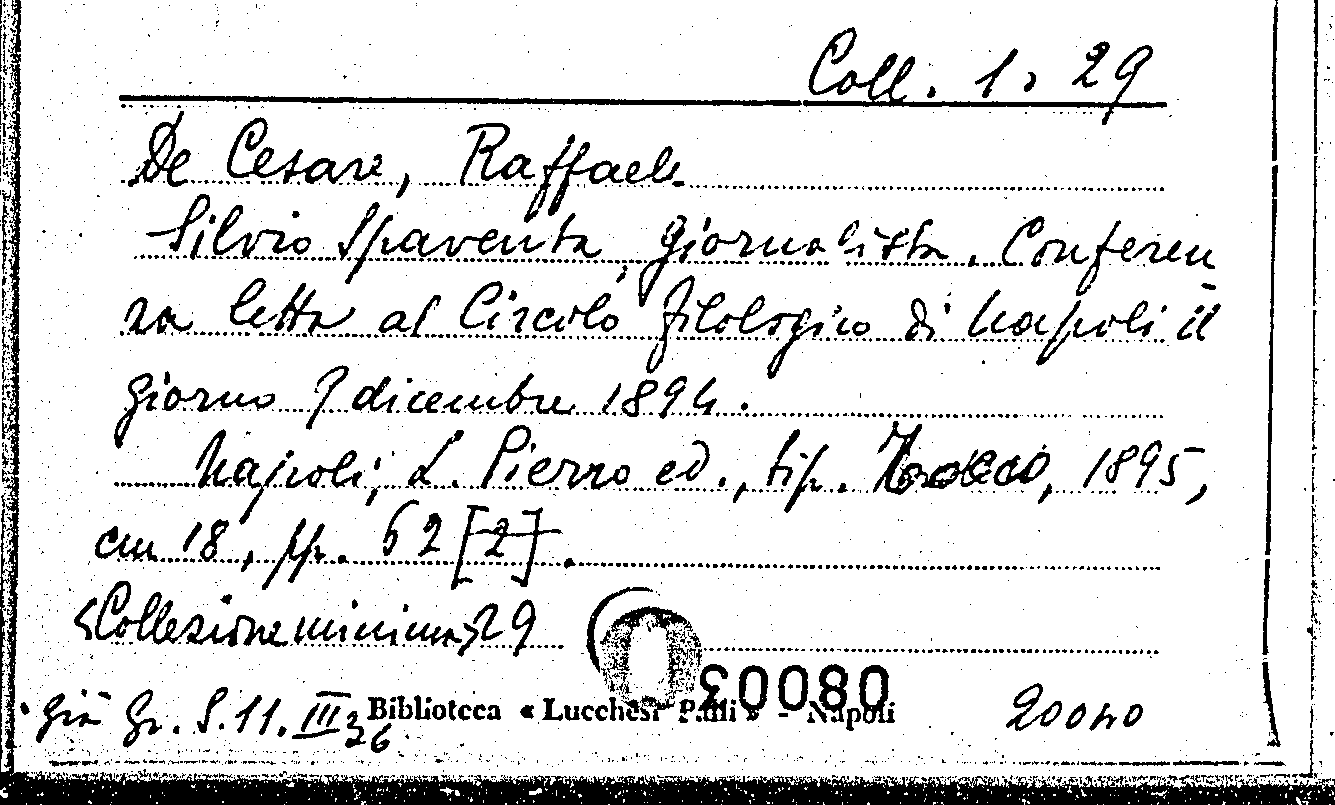 Coll. 1. 29
De Cesare, Raffaele
Silvio Spaventa, giornalista. Conferen
za letta al Circolo filologico di Napoli il
giorno 9 dicembre 1894.
Napoli, L. Pierro ed., tip. Tocco, 1895,
cm 18, pp. 62 [2].
<Collezione minima> 29
già Gr. S. 11. III 26
Biblioteca « Lucchesi Palli » - Napoli
20040